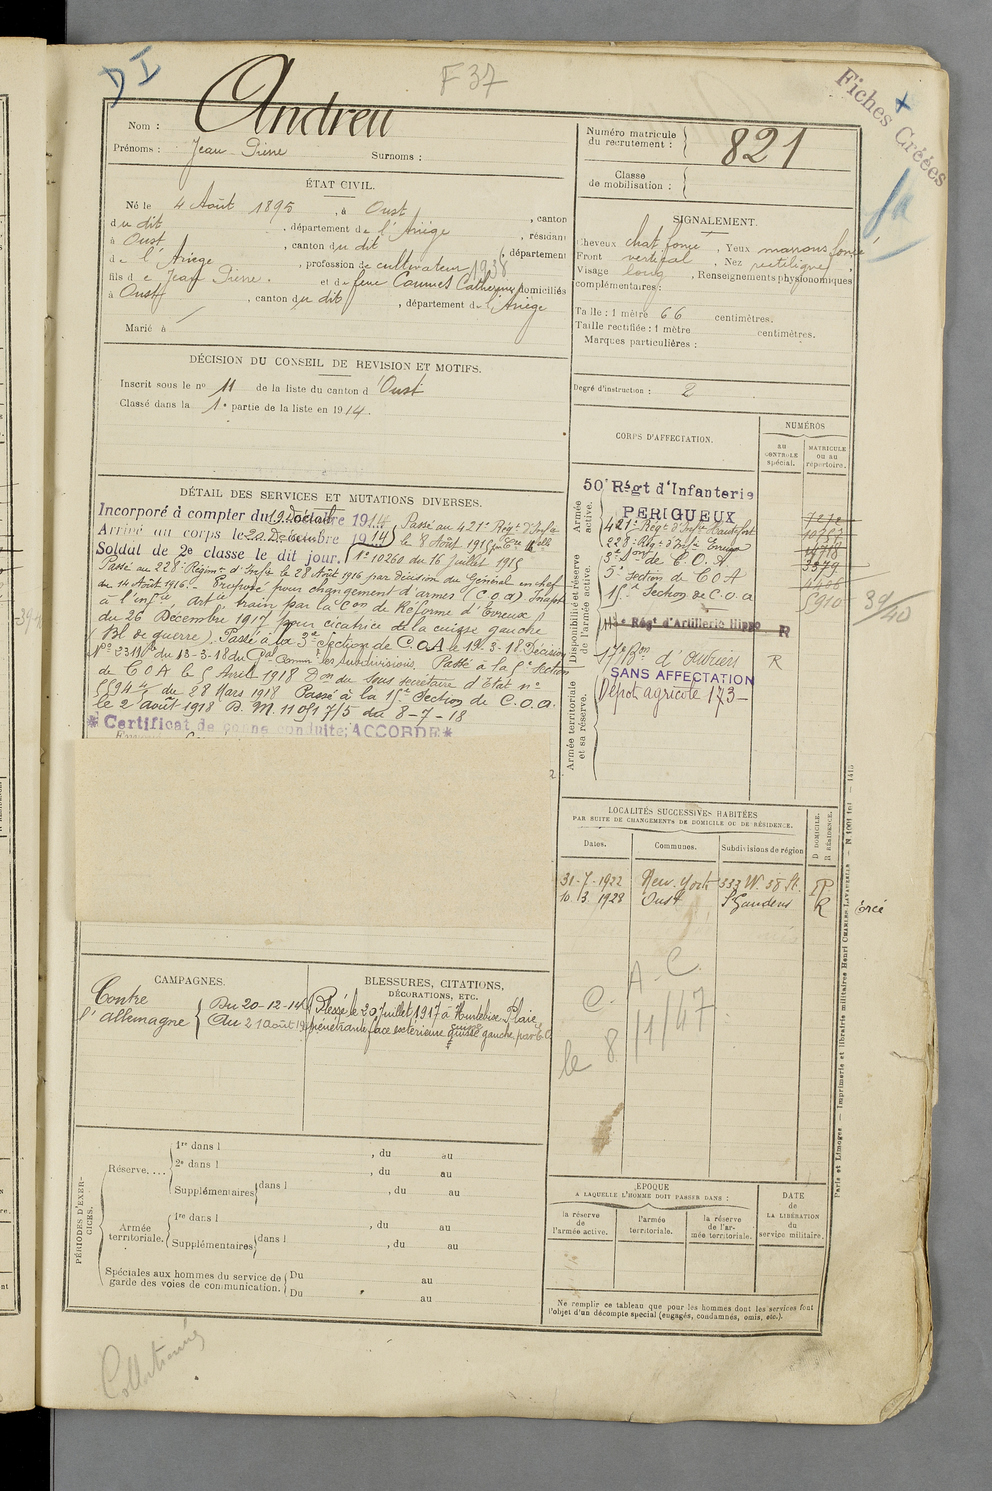 DI
F 37
Fiches Créées
Nom : Andreu
Prénoms : Jean Pierre Surnoms :
Numéro matricule du recrutement : 821
Classe de mobilisation :
ÉTAT CIVIL.
Né le 4 Août 1895, à Oust, canton
du dit, département de l'Ariège, résidant
à Oust, canton du dit, département
de l'Ariège, profession de cultivateur 1938
fils de Jean Pierre. et de feue Catherine domiciliés
à Oust, canton du dit, département de l'Ariège
Marié à
SIGNALEMENT.
Cheveux chat foncé, Yeux marrons foncé
Front vertical, Nez rectiligne
Visage long, Renseignements physionomiques
complémentaires :
Taille : 1 mètre 66 centimètres.
Taille rectifiée : 1 mètre centimètres.
Marques particulières :
Degré d'instruction : 2
DÉCISION DU CONSEIL DE REVISION ET MOTIFS.
Inscrit sous le nº 11 de la liste du canton d'Oust
Classé dans la 1e partie de la liste en 1914.
DÉTAIL DES SERVICES ET MUTATIONS DIVERSES.
Incorporé à compter du 19 Décembre 1914
Arrivé au corps le 20 Décembre 1914
Soldat de 2e classe le dit jour.
Passé au 421e Régt d'Infie
le 8 Août 1915
No 10260 du 16 juillet 1915
Passé au 228e Régimt d'Infie le 28 Août 1916 par décision du Général en chef
du 14 Août 1916. Proposé pour changement d'armes (C.O.A) Inapte
à l'infie, Artie train par la Con de Réforme d'Evreux
du 26 Décembre 1917 pour cicatrice de la cuisse gauche
(Bl de guerre). Passé à la 3e Section de C.O.A le 19-3-18 Décision
du 13-3-18 du Gal Commt les subdivisions. Passé à la 5e Section
de C O A le 5 Avril 1918 Don du Sous secrétaire d'Etat no
5594 du 28 Mars 1918 Passé à la 15e Section de C.O.A.
le 2 Août 1918 D. M. 11051 7/5 du 8-7-18
* Certificat de bonne conduite: ACCORDÉ *
CORPS D'AFFECTATION.
NUMÉROS
au CONTROLE spécial.
MATRICULE ou au répertoire.
Armée active.
Disponibilité et réserve de l'armée active.
Armée territoriale et sa réserve.
50e Régt d'Infanterie
PERIGUEUX
421e Régt d'Infie
228e Régt d'Infie Evreux
3e Son de C. O. A
5e Section de C O A
15e Section de C.O.A
3379
5910
39/40
Régt d'Artillerie Hippo R
17e Bon d'Ouvriers R
SANS AFFECTATION
Dépot agricole 173
LOCALITÉS SUCCESSIVES HABITÉES
PAR SUITE DE CHANGEMENTS DE DOMICILE OU DE RÉSIDENCE.
Dates. Communes. Subdivisions de région
D DOMICILE.
R RÉSIDENCE.
31-7-1922 New-York 333 W. 38 St. R
10.3.1928 Oust St Gaudens R
A. C.
C.
le 8/1/47
CAMPAGNES.
Contre l'allemagne
Du 20-12-14
Au 21 août 19
BLESSURES, CITATIONS,
DÉCORATIONS, ETC.
Blessé le 20 Juillet 1917 à Hurtebise Plaie
pénétrante face extérieure cuisse gauche par E.O
PÉRIODES D'EXERCICES.
Réserve....
1re dans l , du au
2e dans l , du au
Supplémentaires dans l , du au
Armée territoriale.
1re dans l , du au
Supplémentaires dans l , du au
Spéciales aux hommes du service de garde des voies de communication.
Du au
Du au
ÉPOQUE
A LAQUELLE L'HOMME DOIT PASSER DANS :
la réserve de l'armée active.
l'armée territoriale.
la réserve de l'armée territoriale.
DATE DE LA LIBÉRATION du service militaire.
Ne remplir ce tableau que pour les hommes dont les services font
l'objet d'un décompte spécial (engagés, condamnés, omis, etc.).
Paris et Limoges. — Imprimerie et librairie militaires Henri CHARLES-LAVAUZELLE